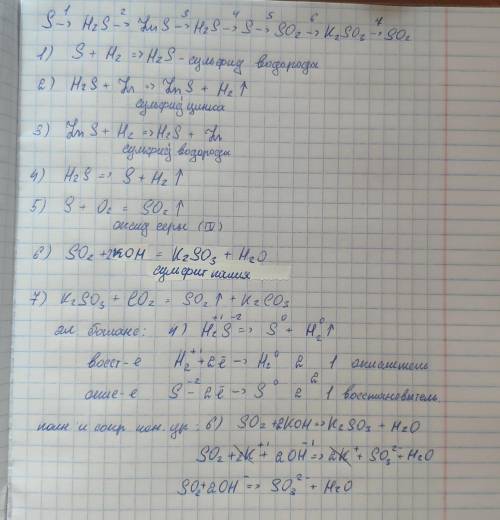 S →1 H2S →2 ZnS →3 H2S →4 S →5 SO2 →6 K2SO3 →7 SO2
1) S + H2 => H2S - сульфид водорода
2) H2S + Zn => ZnS + H2↑
сульфид цинка
3) ZnS + H2 => H2S + Zn
сульфид водорода
4) H2S => S + H2↑
5) S + O2 = SO2↑
оксид серы (IV)
6) SO2 + 2KOH = K2SO3 + H2O
сульфит калия
7) K2SO3 + CO2 = SO2↑ + K2CO3
эл. баланс: 4) H2⁺¹S⁻² => S⁰ + H2⁰↑
восст-е H2⁺¹ + 2ē → H2⁰ 2 1 окислитель
2
окис-е S⁻² - 2ē → S⁰ 2 1 восстановитель.
полн. и сокр. ион. ур.: 6) SO2 + 2KOH => K2SO3 + H2O
SO2 + 2K⁺¹ + 2OH⁻¹ => 2K⁺ + SO3²⁻ + H2O
SO2 + 2OH⁻ => SO3²⁻ + H2O